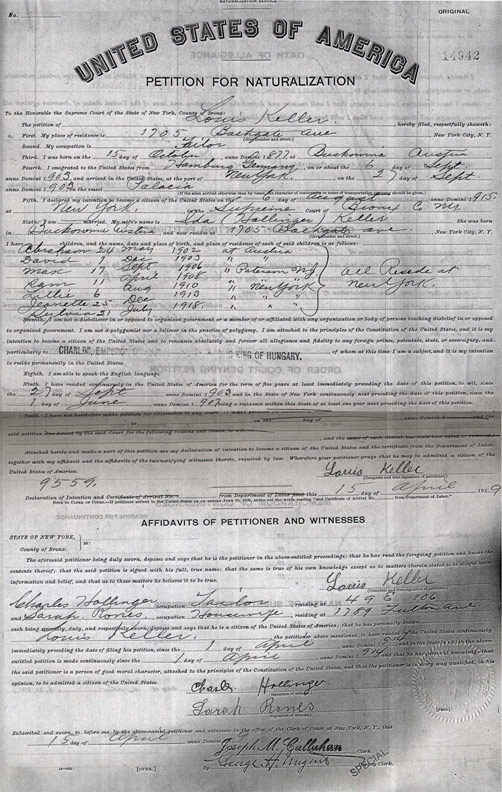 NATURALIZATION SERVICE
No.
ORIGINAL
UNITED STATES OF AMERICA
14942
PETITION FOR NATURALIZATION
To the Honorable the Supreme Court of the State of New York, County of Bronx:
The petition of Louis Keller, hereby filed, respectfully showeth:
First. My place of residence is 1705 Bathgate Ave New York City, N. Y.
Second. My occupation is Tailor
Third. I was born on the 15 day of October anno Domini 1877 Buckowina Austria
Fourth. I emigrated to the United States from Hamburg Germany on or about the 6 day of Sept.
anno Domini 1903 and arrived in the United States, at the port of New York, on the 2 day of Sept.
anno Domini 1903 on the vessel Palacia
Fifth. I declared my intention to become a citizen of the United States on the 6 day of August anno Domini 1915
at New York, in the Supreme Court of Bronx C. NY
Sixth. I am married. My wife's name is Ida (Hollinger) Keller She was born
in Buckowina Austria 1705 Bathgate ave. New York City, N. Y.
I have children, and the name, date and place of birth, and place of residence of each of said children is as follows:
Abraham 20 May 1902 at Austria
David 9 Dec 1903 " "
Max 17 Sept 1906 " Paterson NJ
11 April 1908 "
Lillie 6 Aug 1910 " New York
Jeanette 25 Dec 1913 " "
21 July 1918 " "
all Reside at New York.
Seventh. I am not a disbeliever in or opposed to organized government or a member of or affiliated with any organization or body of persons teaching disbelief in or opposed
to organized government. I am not a polygamist nor a believer in the practice of polygamy. I am attached to the principles of the Constitution of the United States, and it is my
intention to become a citizen of the United States and to renounce absolutely and forever all allegiance and fidelity to any foreign prince, potentate, state, or sovereignty, and
particularly to CHARLES, KING OF HUNGARY, of whom at this time I am a subject, and it is my intention
to reside permanently in the United States.
Eighth. I am able to speak the English language.
Ninth. I have resided continuously in the United States of America for the term of five years at least immediately preceding the date of this petition, to wit, since
the 2 day of Sept anno Domini 1903 and in the State of New York continuously next preceding the date of this petition, since the
1 day of June anno Domini 1907 being a residence within this State of at least one year next preceding the date of this petition.
Attached hereto and made a part of this petition are my declaration of intention to become a citizen of the United States and the certificate from the Department of Labor,
together with my affidavit and the affidavits of the two verifying witnesses thereto, required by law. Wherefore your petitioner prays that he may be admitted a citizen of the
United States of America.
Louis Keller
9559
Declaration of Intention and Certificate of Arrival No. from Department of Labor filed this 15 day of April 1919
AFFIDAVITS OF PETITIONER AND WITNESSES
STATE OF NEW YORK,
County of Bronx:
ss:
The aforesaid petitioner being duly sworn, deposes and says that he is the petitioner in the above-entitled proceedings; that he has read the foregoing petition and knows the
contents thereof; that the said petition is signed with his full, true name; that the same is true of his own knowledge except as to matters therein stated to be alleged upon
information and belief, and that as to those matters he believes it to be true.
Louis Keller
Charles Hollinger, occupation Tailor, residing at 106
and Sarah Rones, occupation Housewife, residing at 1789 Fulton Ave
each being severally, duly, and respectively sworn, deposes and says that he is a citizen of the United States of America; that he has personally known
Louis Keller, the petitioner above mentioned, to have resided in the United States continuously
immediately preceding the date of filing his petition, since the 1 day of April anno Domini 1914 and in the State
entitled petition is made continuously since the 1 day of April anno Domini 1914
the said petitioner is a person of good moral character, attached to the principles of the Constitution of the United States, and that the petitioner is in every way qualified, in his
opinion, to be admitted a citizen of the United States.
Charles Hollinger
Sarah Rones
Subscribed and sworn to before me by the above-named petitioner and witnesses in the office of the Clerk of Court at New York, N. Y., this
15 day of April anno Domini
Joseph M. Callahan, Clerk.
By George H. Nugent
SPECIAL
[OVER.]